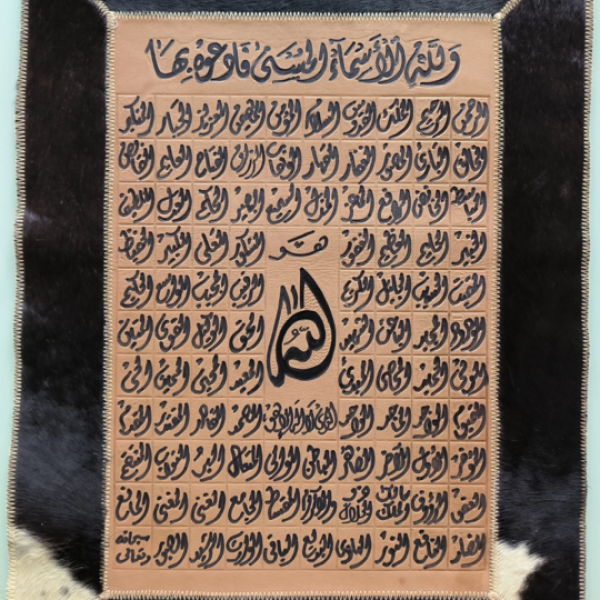 ولله الأسماء الحسنى فادعوه بها
الرحمن الرحيم الملك القدوس السلام المؤمن المهيمن العزيز الجبار المتكبر
الخالق البارئ المصور الغفار القهار الوهاب الرزاق الفتاح العليم القابض
الباسط الخافض الرافع المعز المذل السميع البصير الحكم العدل اللطيف
الخبير الحليم العظيم الغفور هو الشكور العلي الكبير الحفيظ
المقيت الحسيب الجليل الكريم الرقيب المجيب الواسع الحكيم
الودود المجيد الباعث الشهيد الله الحق الوكيل القوي المتين
الولي الحميد المحصي المبدئ المعيد المحيي المميت الحي
القيوم الواجد الماجد الواحد الذي لا إله إلا هو الصمد القادر المقتدر المقدم
المؤخر الأول الآخر الظاهر الباطن الوالي المتعال البر التواب المنتقم
العفو الرؤوف مالك الملك ذو الجلال والإكرام المقسط الجامع الغني المغني
الضار النافع النور الهادي البديع الباقي الوارث الرشيد الصبور سبحانه وتعالى